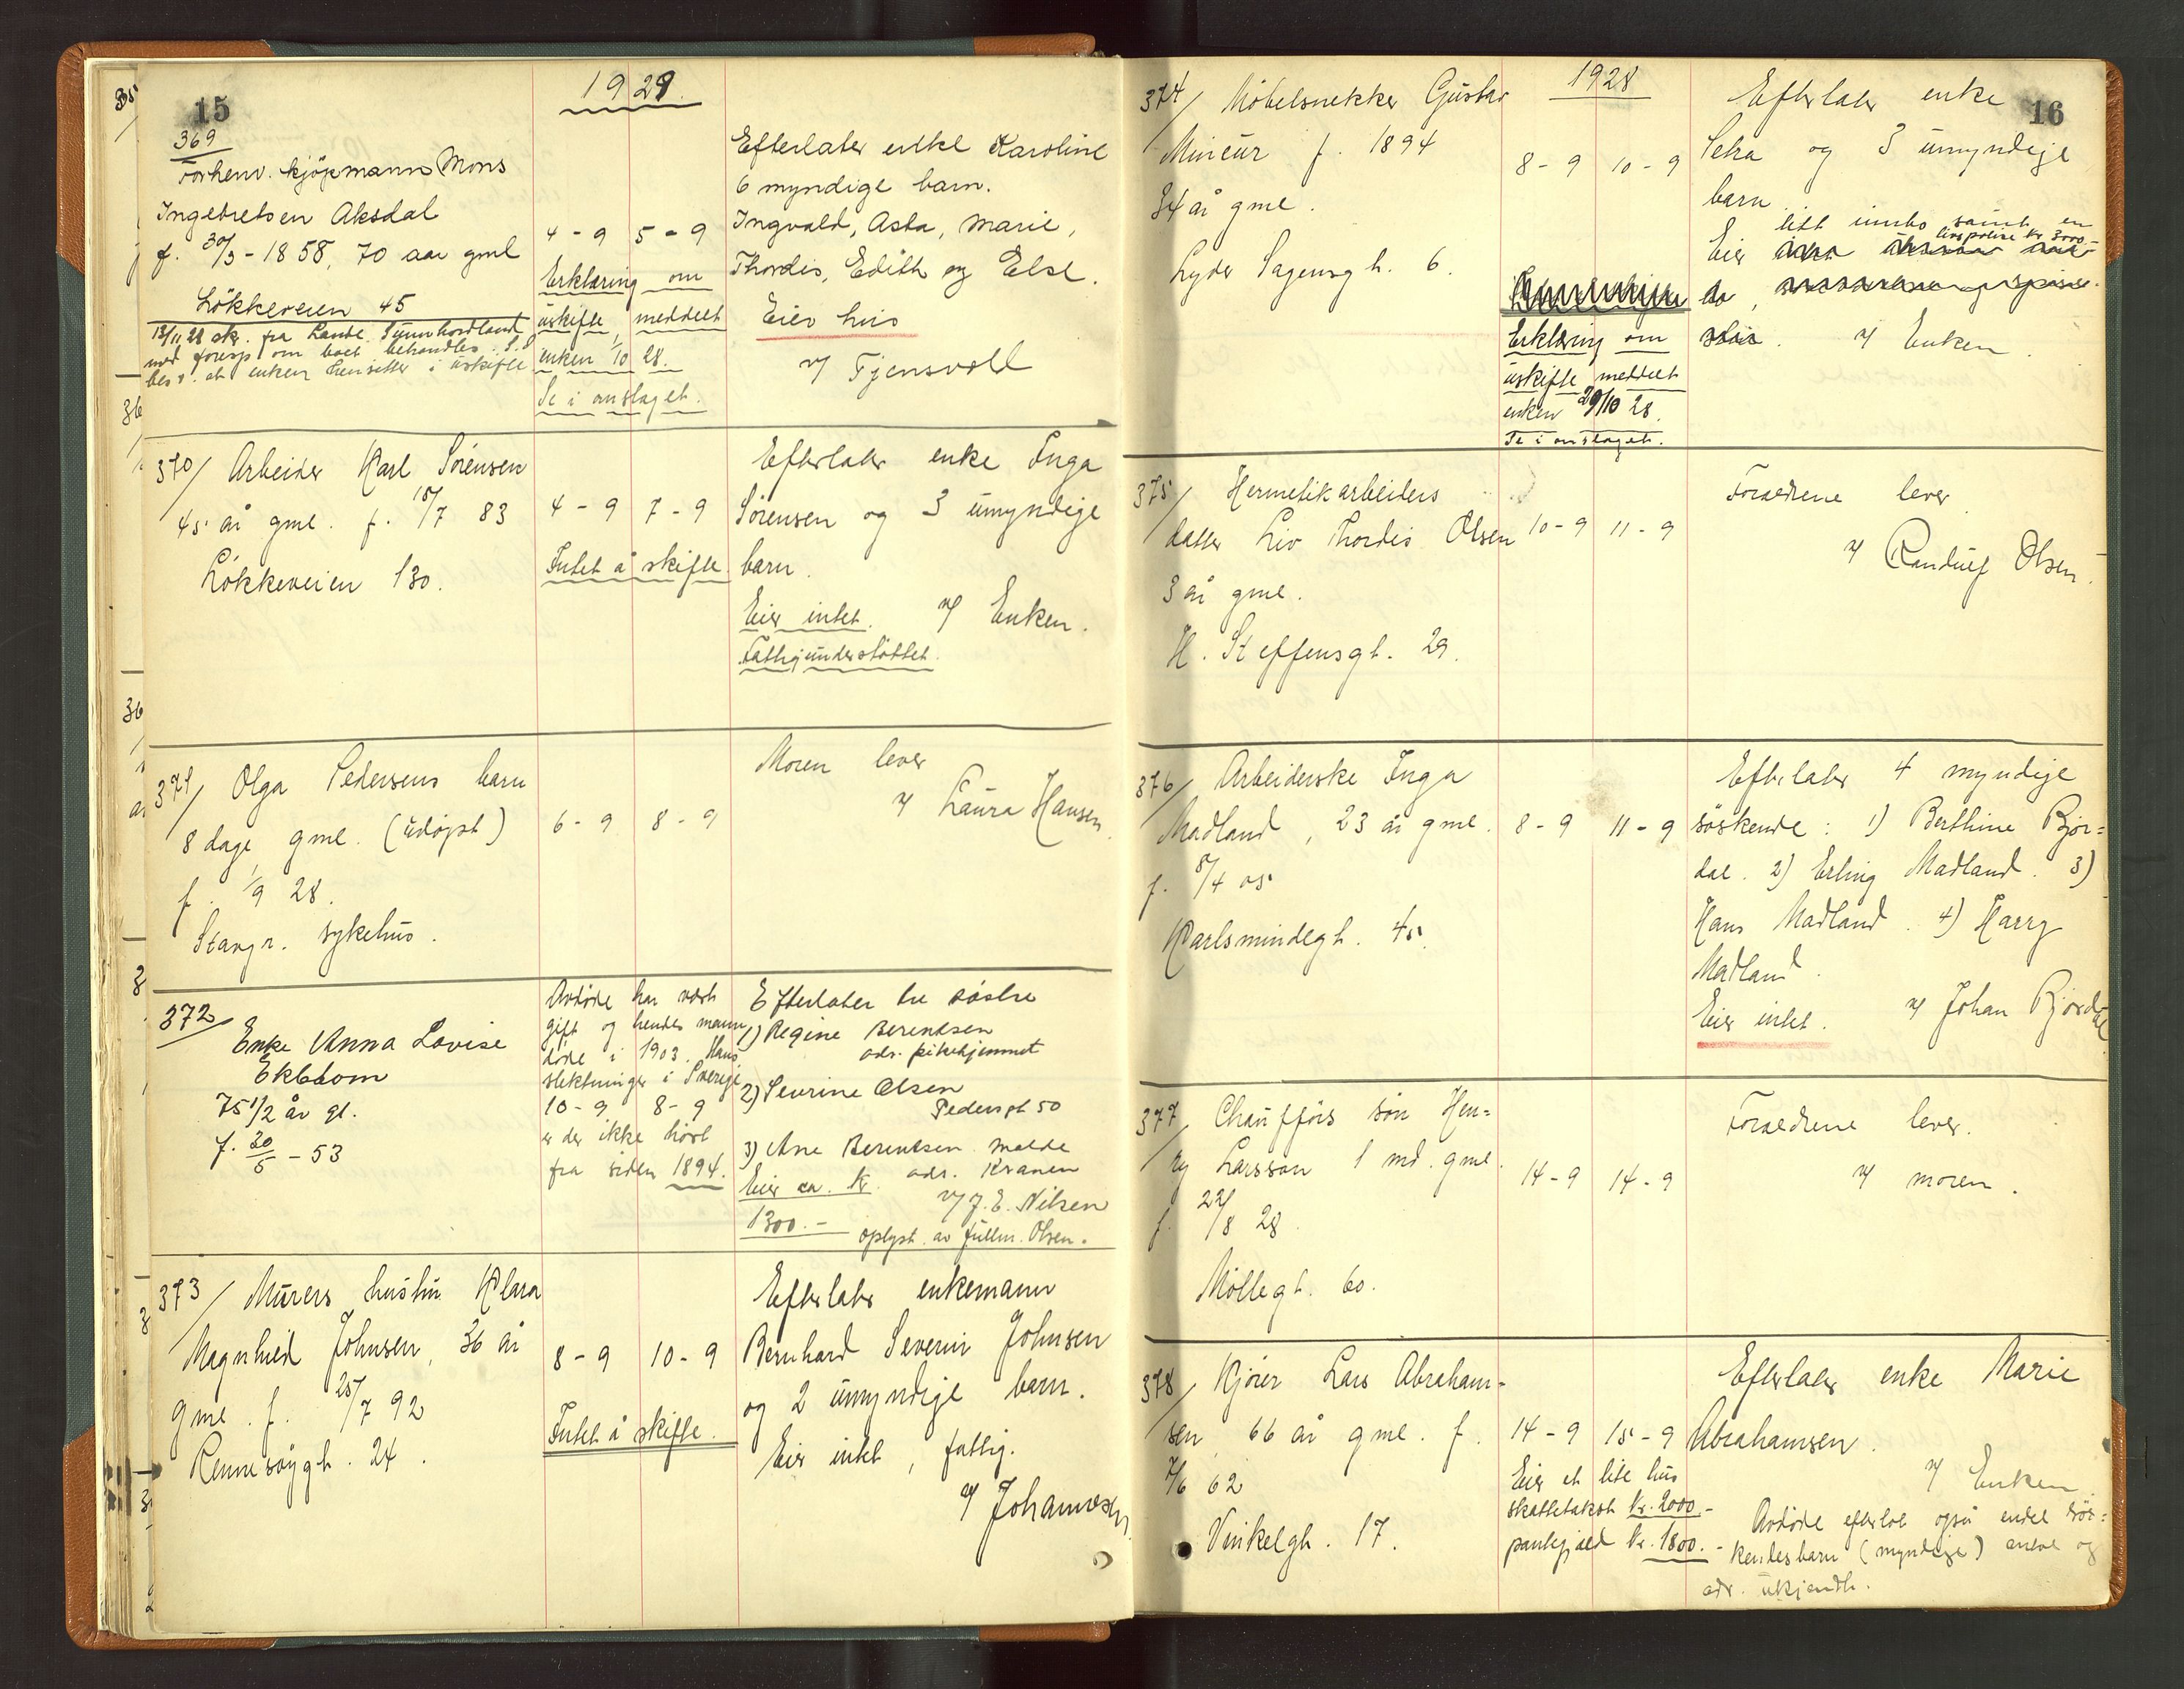 15
1928
369
Forhenv. kjøpmann Mons
Ingebretsen Aksdal
f. 30/3 - 1858, 70 aar gml
Løkkeveien 45
13/11 28 skr. fra Lensm. Sunnhordland
med foresp om boet behandles. S. D
besv. at enken hensitter i uskifte
4 - 9 5 - 9
Erklæring om
uskifte meddelt
enken 1/10 28.
Se i omslaget.
Efterlater enke Karoline
6 myndige barn.
Ingvald, Asta, Marie,
Thordis, Edith og Else.
Eier hus
v/ Tjensvold
370/ Arbeider Karl Sørensen
45 år gml. f. 18/7 83
Løkkeveien 130.
4 - 9 7 - 9
Intet å skifte
Efterlater enke Inga
Sørensen og 3 umyndige
barn.
Eier intet. v/ Enken.
Fattigunderstøttet.
371/ Olga Pedersens barn
8 dage gml. (udøpt)
f. 1/9 28.
Stavgr. sykehus.
6 - 9 8 - 9
Moren lever
v/ Laura Hansen.
372/
Enke Anna Lovise
Ekblom
75 1/2 år gl.
f. 30/5 - 53
Avdøde har vært
gift og hendes mann
døde i 1903. Hans
slektninger i Sverige
10 - 9 8 - 9
er der ikke hørt
fra siden 1894.
Efterlater tre søstre
1) Regine Berentsen
adr. pikehjemmet
2) Severine Olsen
Pedersgt 50
3) Ane Berentsen Molde
adr. Kranen
Eier ca. kr.
1300.-
v/ J. E. Nilsen
oplyst av fullm. Olsen.
373/ Murers hustru Klara
Magnhild Johnsen, 36 år
gml. f. 25/7 92
Rennesøygt. 24.
8 - 9 10 - 9
Intet å skifte.
Efterlater enkemann
Bernhard Severin Johnsen
og 2 umyndige barn.
Eier intet, fattig.
v/ Johannesen
16
1928
374/ Møbelsnekker Gustav
Mineur f. 1894
34 år gml.
Lyder Sagensgt. 6.
8 - 9 10 - 9
Erklæring om
uskifte meddelt
enken 29/10 28.
Se i omslaget.
Efterlater enke
Selia og 3 umyndige
barn.
litt innbo samt en
livspolise kr 3000.-
Eier
v/ Enken.
375/ Hermetikarbeiders
datter Liv Thordis Olsen
3 år gml.
H. Steffensgt. 29.
10 - 9 11 - 9
Foraeldrene lever
v/ Randulf Olsen.
376/ Arbeiderske Inga
Madland, 23 år gml.
f. 8/4 05
Karlsmindegt. 45.
8 - 9 11 - 9
Efterlater 4 myndige
søskende: 1) Berthine Bjor=
dal. 2) Erling Madland. 3)
Hans Madland. 4) Harry
Madland.
Eier intet. v/ Johan Bjordal
377/ Chaufførs søn Hen=
ry Larsson 1 md. gml.
f. 22/8 28.
Møllegt. 60.
14 - 9 14 - 9
Foraeldrene lever.
v/ moren.
378/ Kjører Lars Abraham-
sen, 66 år gml. f.
7/6 62
Vinkelgt. 17.
14 - 9 15 - 9
Eier et lite hus
skattetakst kr. 2000.-
pantegjæld kr. 1800.-
Efterlater enke Marie
Abrahamsen.
v/ Enken.
Avdøde efterlot også endel søs=
kendebarn (myndige) antal og
adr. ukjendt.